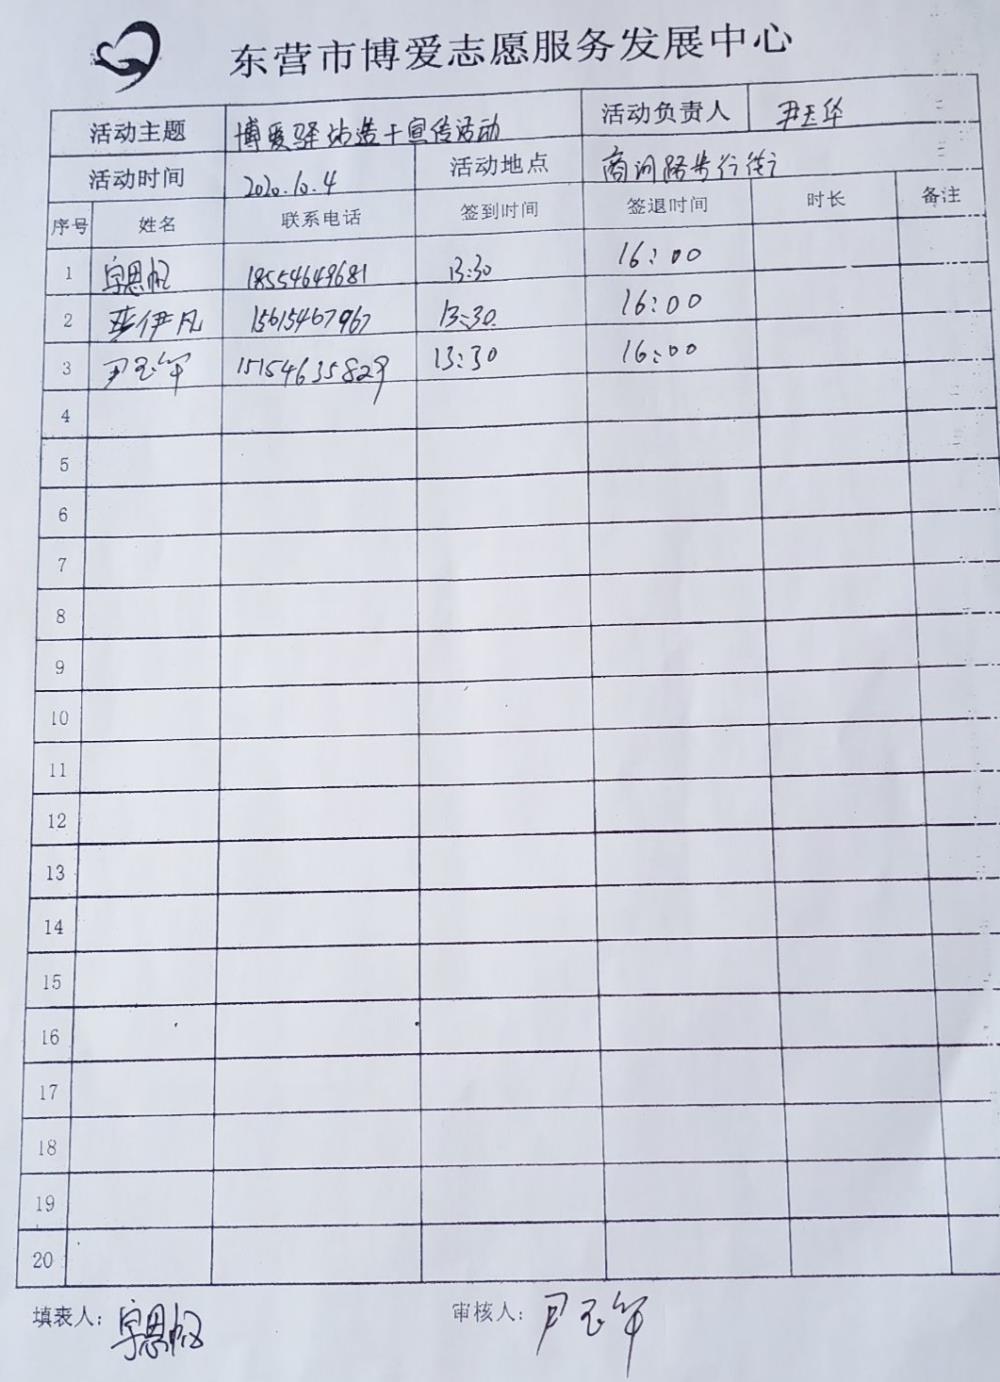 东营市博爱志愿服务发展中心
活动主题 博爱驿站造干宣传活动 活动负责人 尹玉华
活动时间 2020.10.4 活动地点 商河路步行街
序号 姓名 联系电话 签到时间 签退时间 时长 备注
1 18554649681 13:30 16:00
2 伊凡 15615467967 13:30 16:00
3 尹玉华 15154635829 13:30 16:00
4
5
6
7
8
9
10
11
12
13
14
15
16
17
18
19
20
填表人: 审核人: 尹玉华